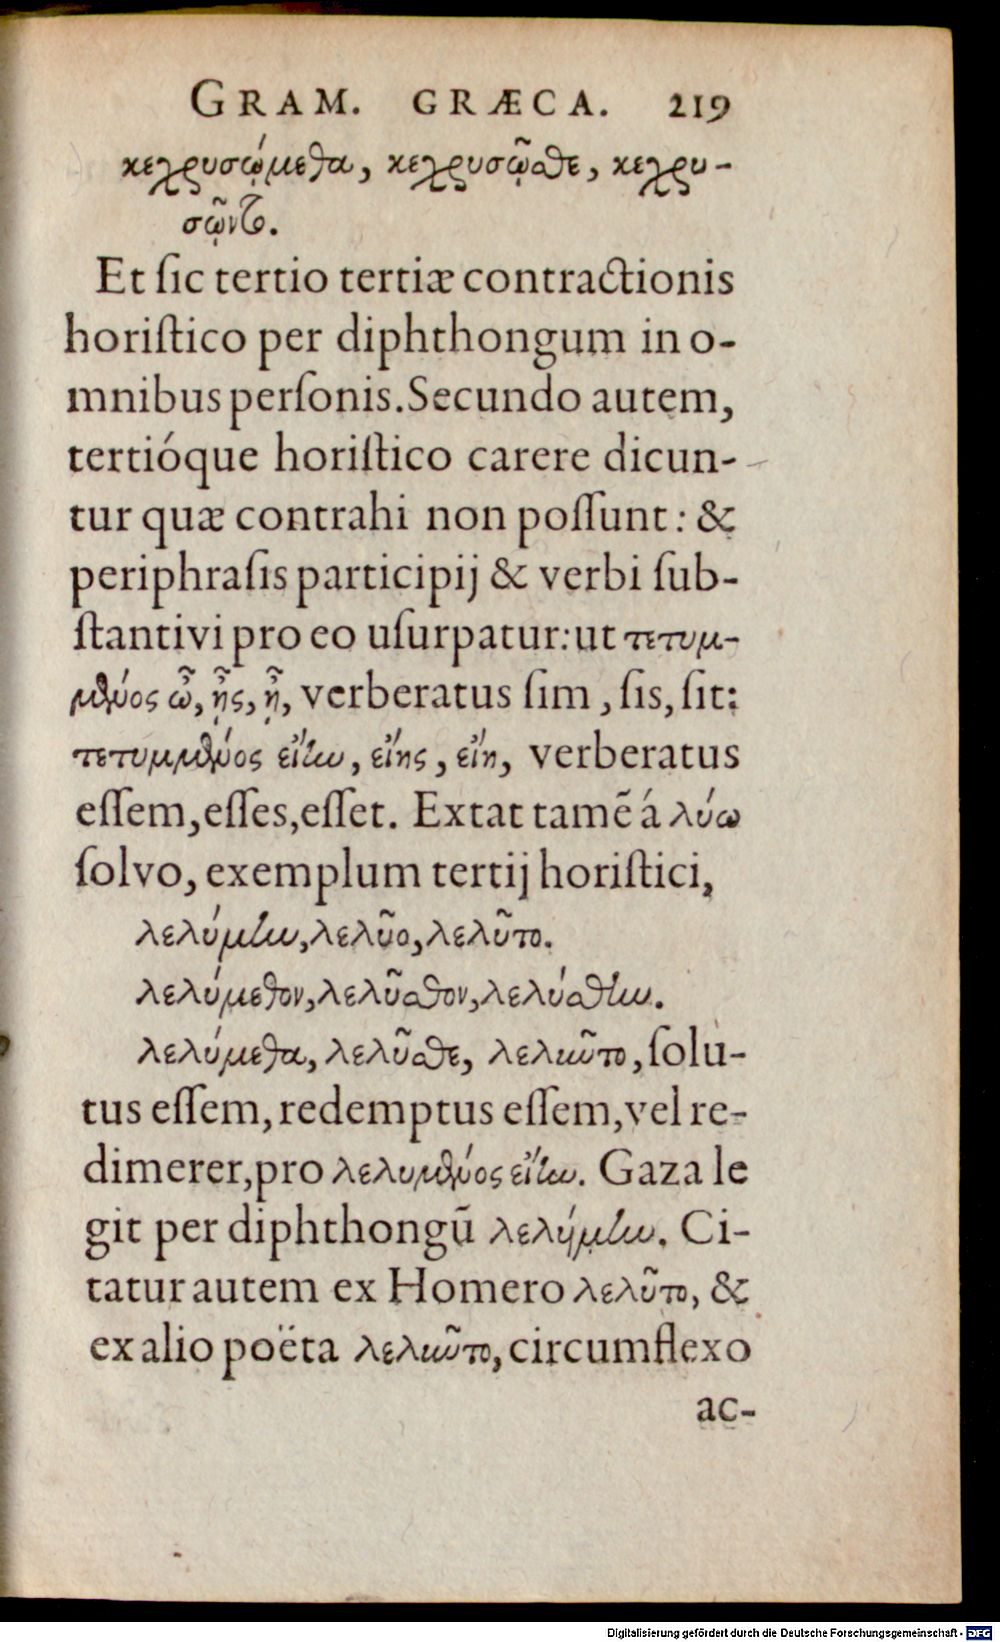 GRAM. GRÆCA. 219
κεχρυσῴμεθα, κεχρυσῷσθε, κεχρυ-
σῷντο.
Et ſic tertio tertiæ contractionis
horiſtico per diphthongum in o-
mnibus perſonis. Secundo autem,
tertióque horiſtico carere dicun-
tur quæ contrahi non poſſunt: &
periphraſis participij & verbi ſub-
ſtantivi pro eo uſurpatur: ut τετυμ-
μένος ὦ, ᾖς, ᾖ, verberatus ſim, ſis, ſit:
τετυμμένος εἴην, εἴης, εἴη, verberatus
eſſem, eſſes, eſſet. Extat tamẽ á λύω
ſolvo, exemplum tertij horiſtici,
λελύμην, λελῦο, λελῦτο.
λελύμεθον, λελῦσθον, λελύσθην.
λελύμεθα, λελῦσθε, λελιῦντο, ſolu-
tus eſſem, redemptus eſſem, vel re-
dimerer, pro λελυμένος εἴην. Gaza le
git per diphthongũ λελύιμην. Ci-
tatur autem ex Homero λελῦτο, &
ex alio poëta λελιῦντο, circumflexo
ac-
Digitalisierung gefördert durch die Deutsche Forschungsgemeinschaft - DFG